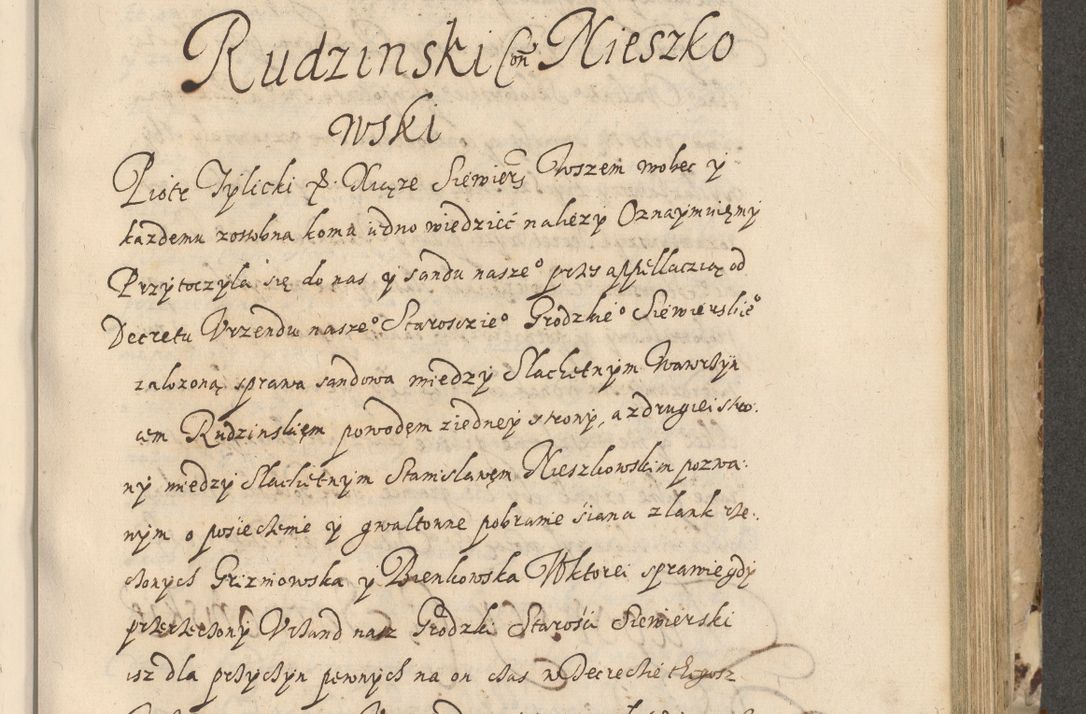 Rudzinski Con Nieszko
wski
Piotr Tylicki & Xiąze Siewiers Wszem wobec y
kazdemu zosobna komu iedno wiedzieć nalezy Oznaymuięmy
Przytoczyla się do nas y sandu nasze° przes appellaczią od
Decretu Vrzendu nasze° Starosczie° Grodzkie° Siewierskie°
zalozoną sprawa sandowa miedzy Slachetnym Wawrzyn
cem Rudzinskięm powodęm ziedney strony, a zdrugiei stro
ny miedzy Slachetnym Stanislawęm Nieszkowskim pozwa
nym o posieczenie y gwaltonne pobranie siana z lank rze
czonych Grizniowska y Bienkowska Wktorei sprawie gdy
przerzeczony Vrzand nasz Grodzki Starości Siewierski
isz dla przyczyn pewnych na on czas w Decrecie